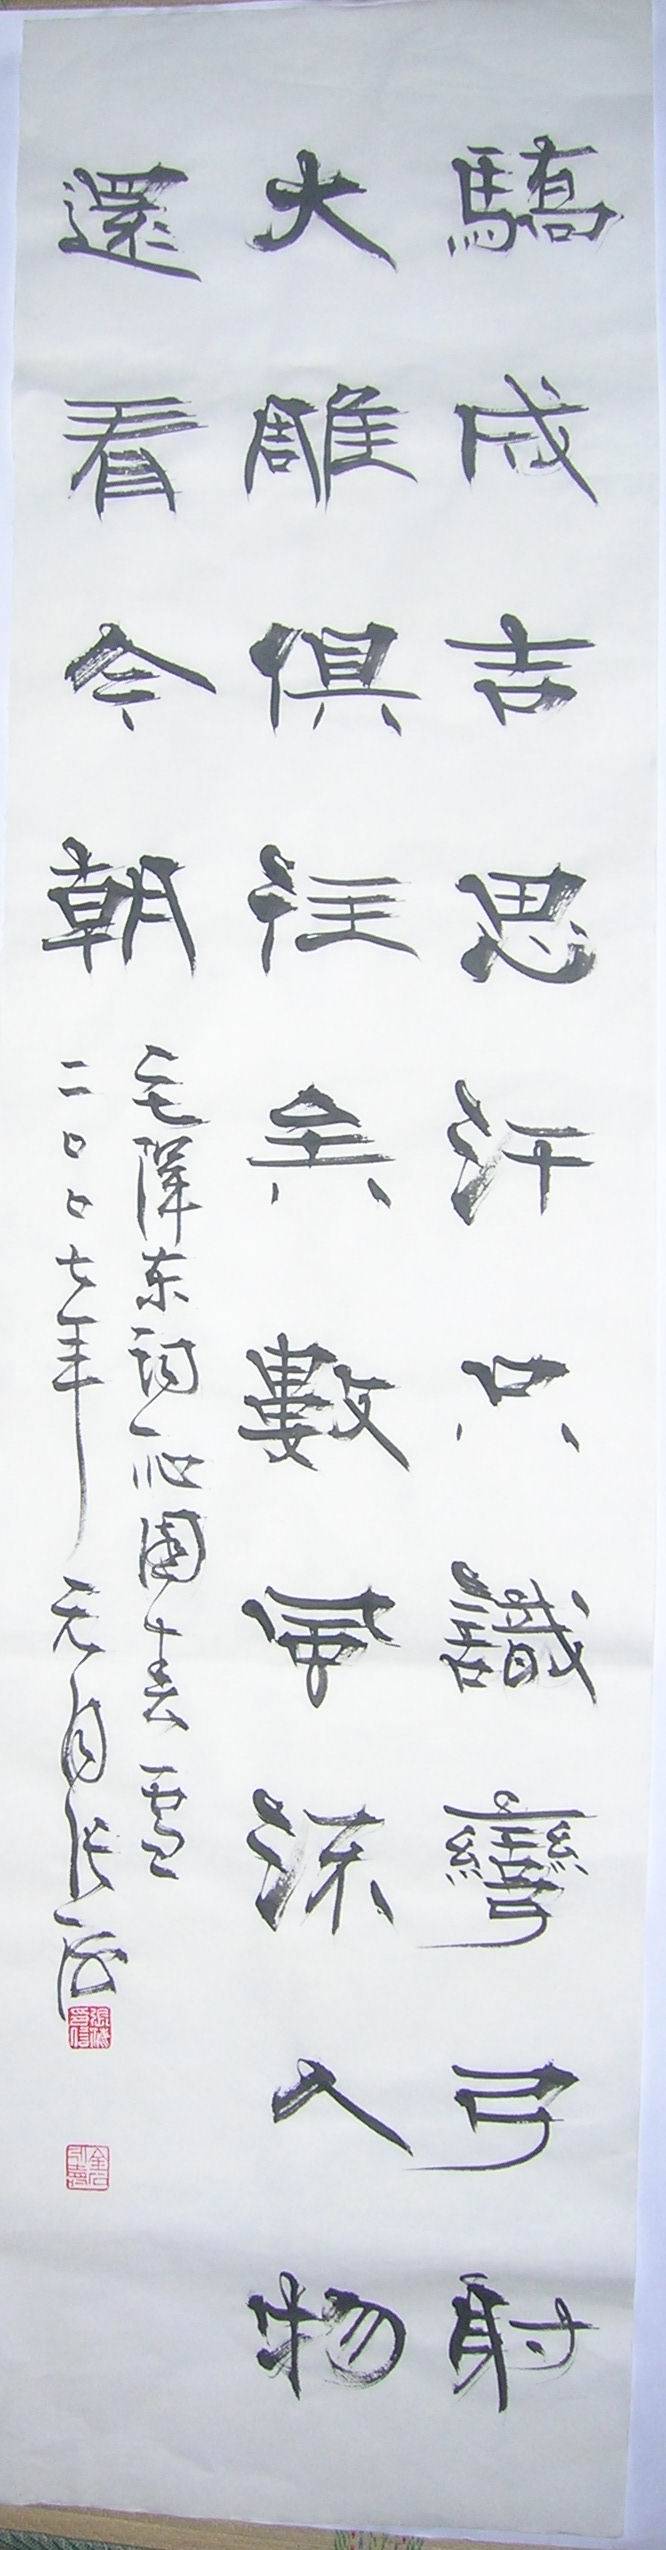 驕成吉思汗只識彎弓射
大雕俱往矣數風流人物
還看今朝
毛澤东词沁园春雪
二〇〇七年元月张